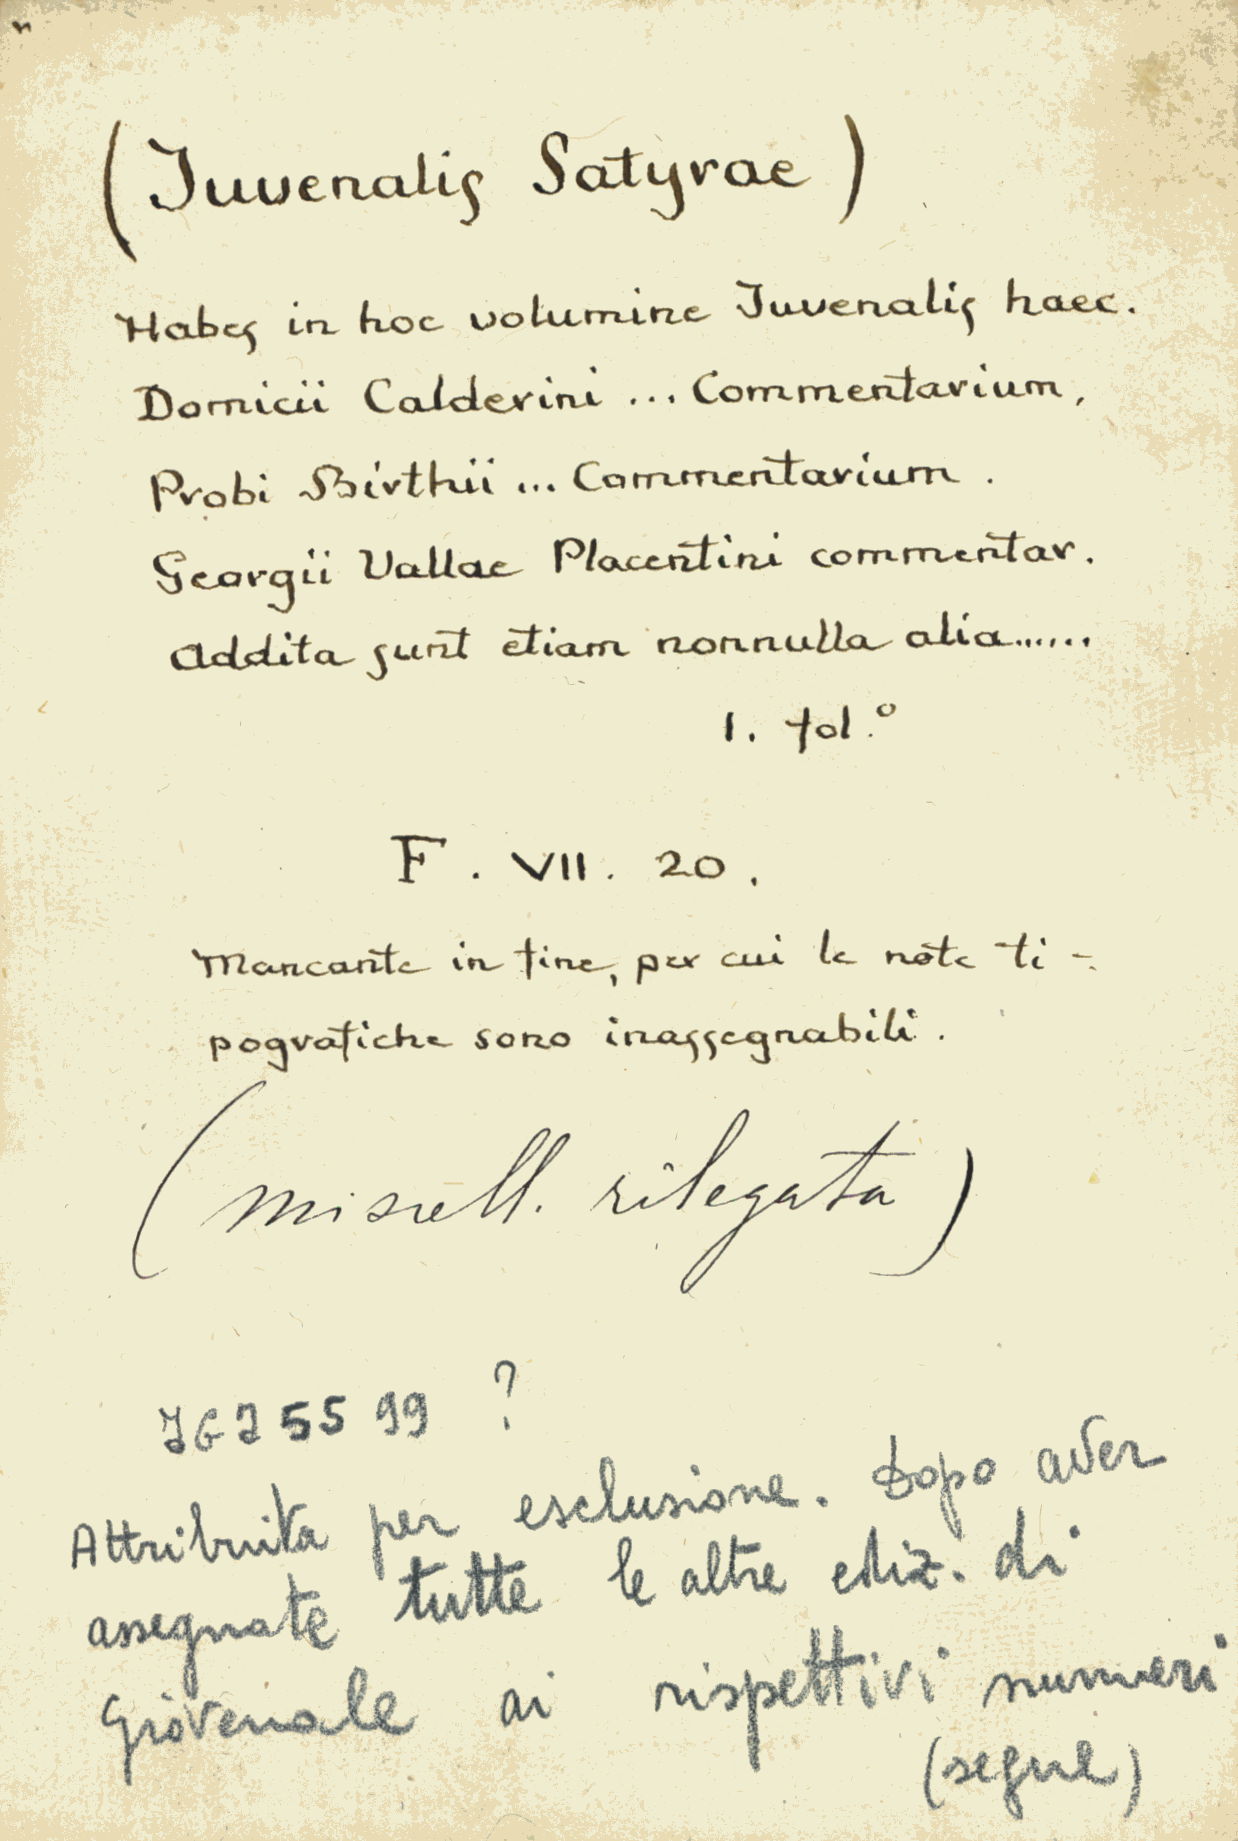 (Iuvenalis Satyrae)
Habes in hoc volumine Iuvenalis haec.
Domicii Calderini ... Commentarium,
Probi Birthii ... Commentarium.
Georgii Vallae Placentini commentar.
Addita sunt etiam nonnulla alia......
1. fol.º
F. VII. 20.
Mancante in fine, per cui le note ti-
pografiche sono inassegnabili.
(miscell. rilegata)
IGI 5599 ?
Attribuita per esclusione. Dopo aver
assegnate tutte le altre ediz. di
Giovenale ai rispettivi numeri
(segue)